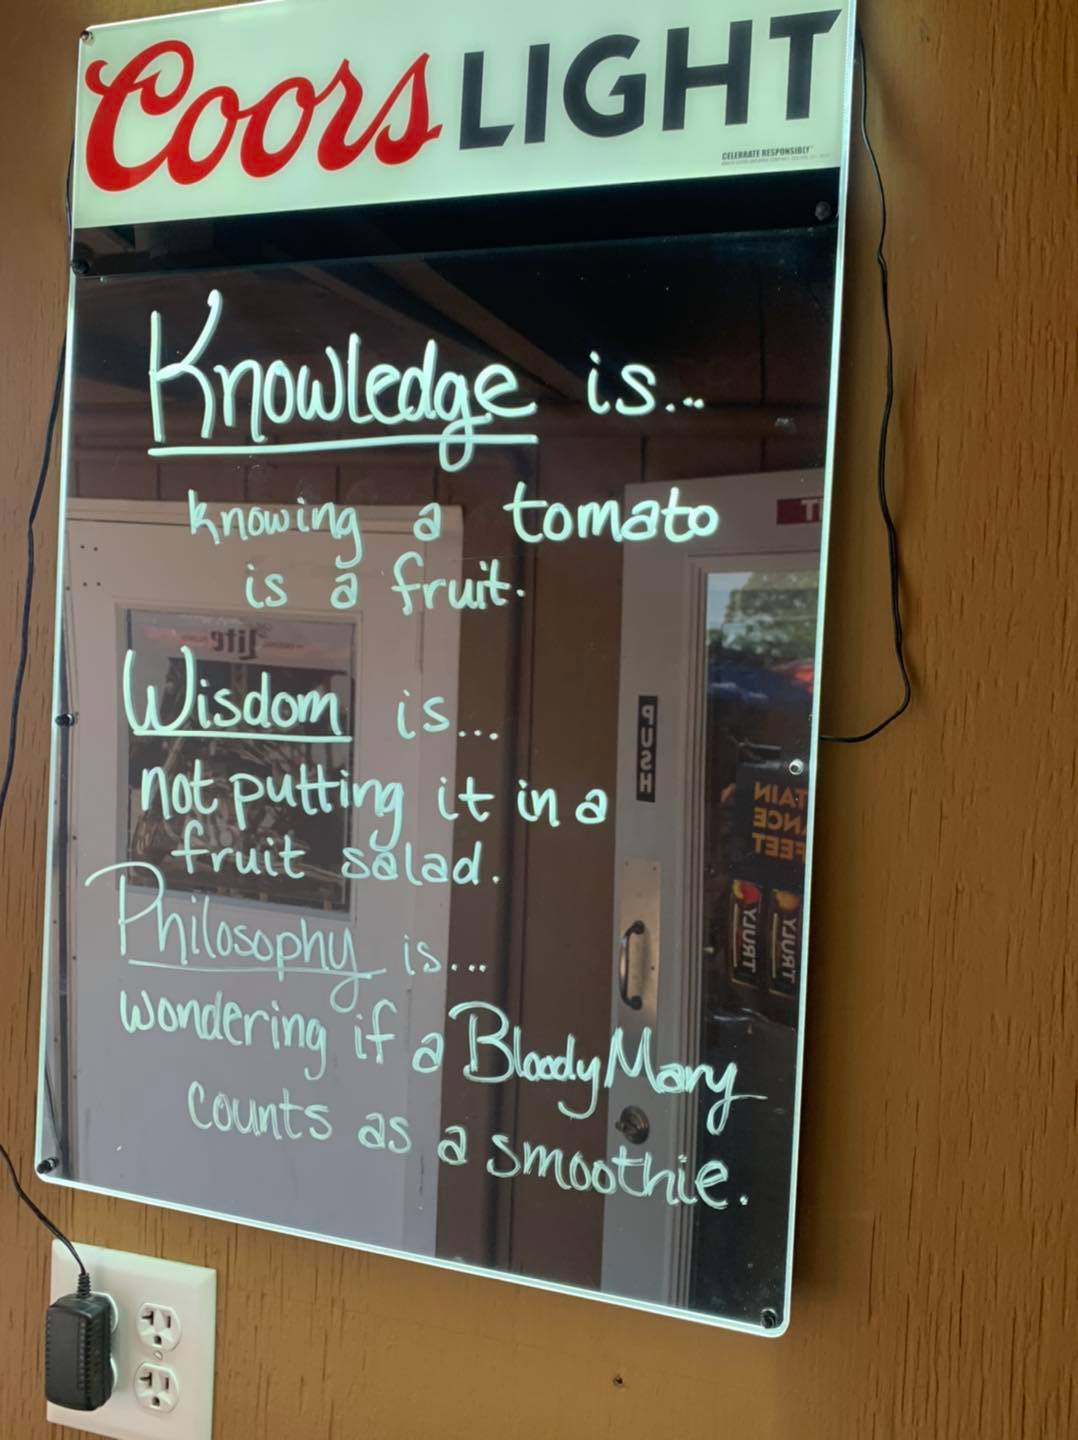 Coors LIGHT
CELEBRATE RESPONSIBLY
Knowledge is...
knowing a tomato
is a fruit.
Wisdom is...
not putting it in a
fruit salad.
Philosophy is...
wondering if a Bloody Mary
counts as a smoothie.
Lite
PUSH
TRULY
TRULY